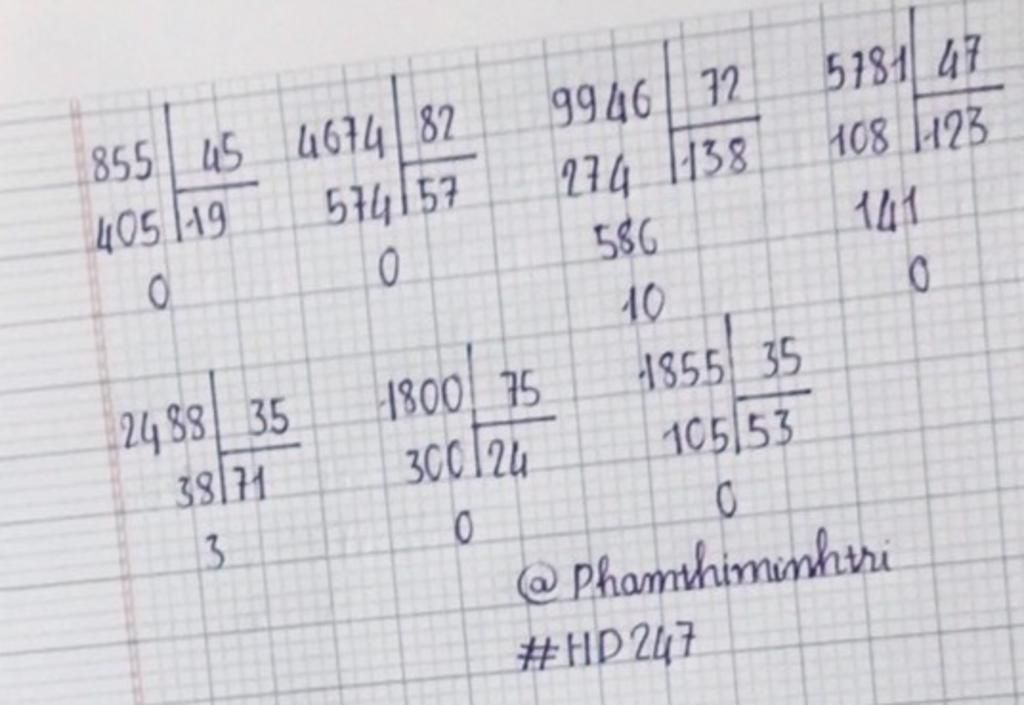 855 45
405 19
0
4674 82
574 57
0
9946 72
274 138
586
10
5781 47
108 123
141
0
2488 35
38 71
3
1800 75
300 24
0
1855 35
105 53
0
@Phamthiminhtri
#HD247